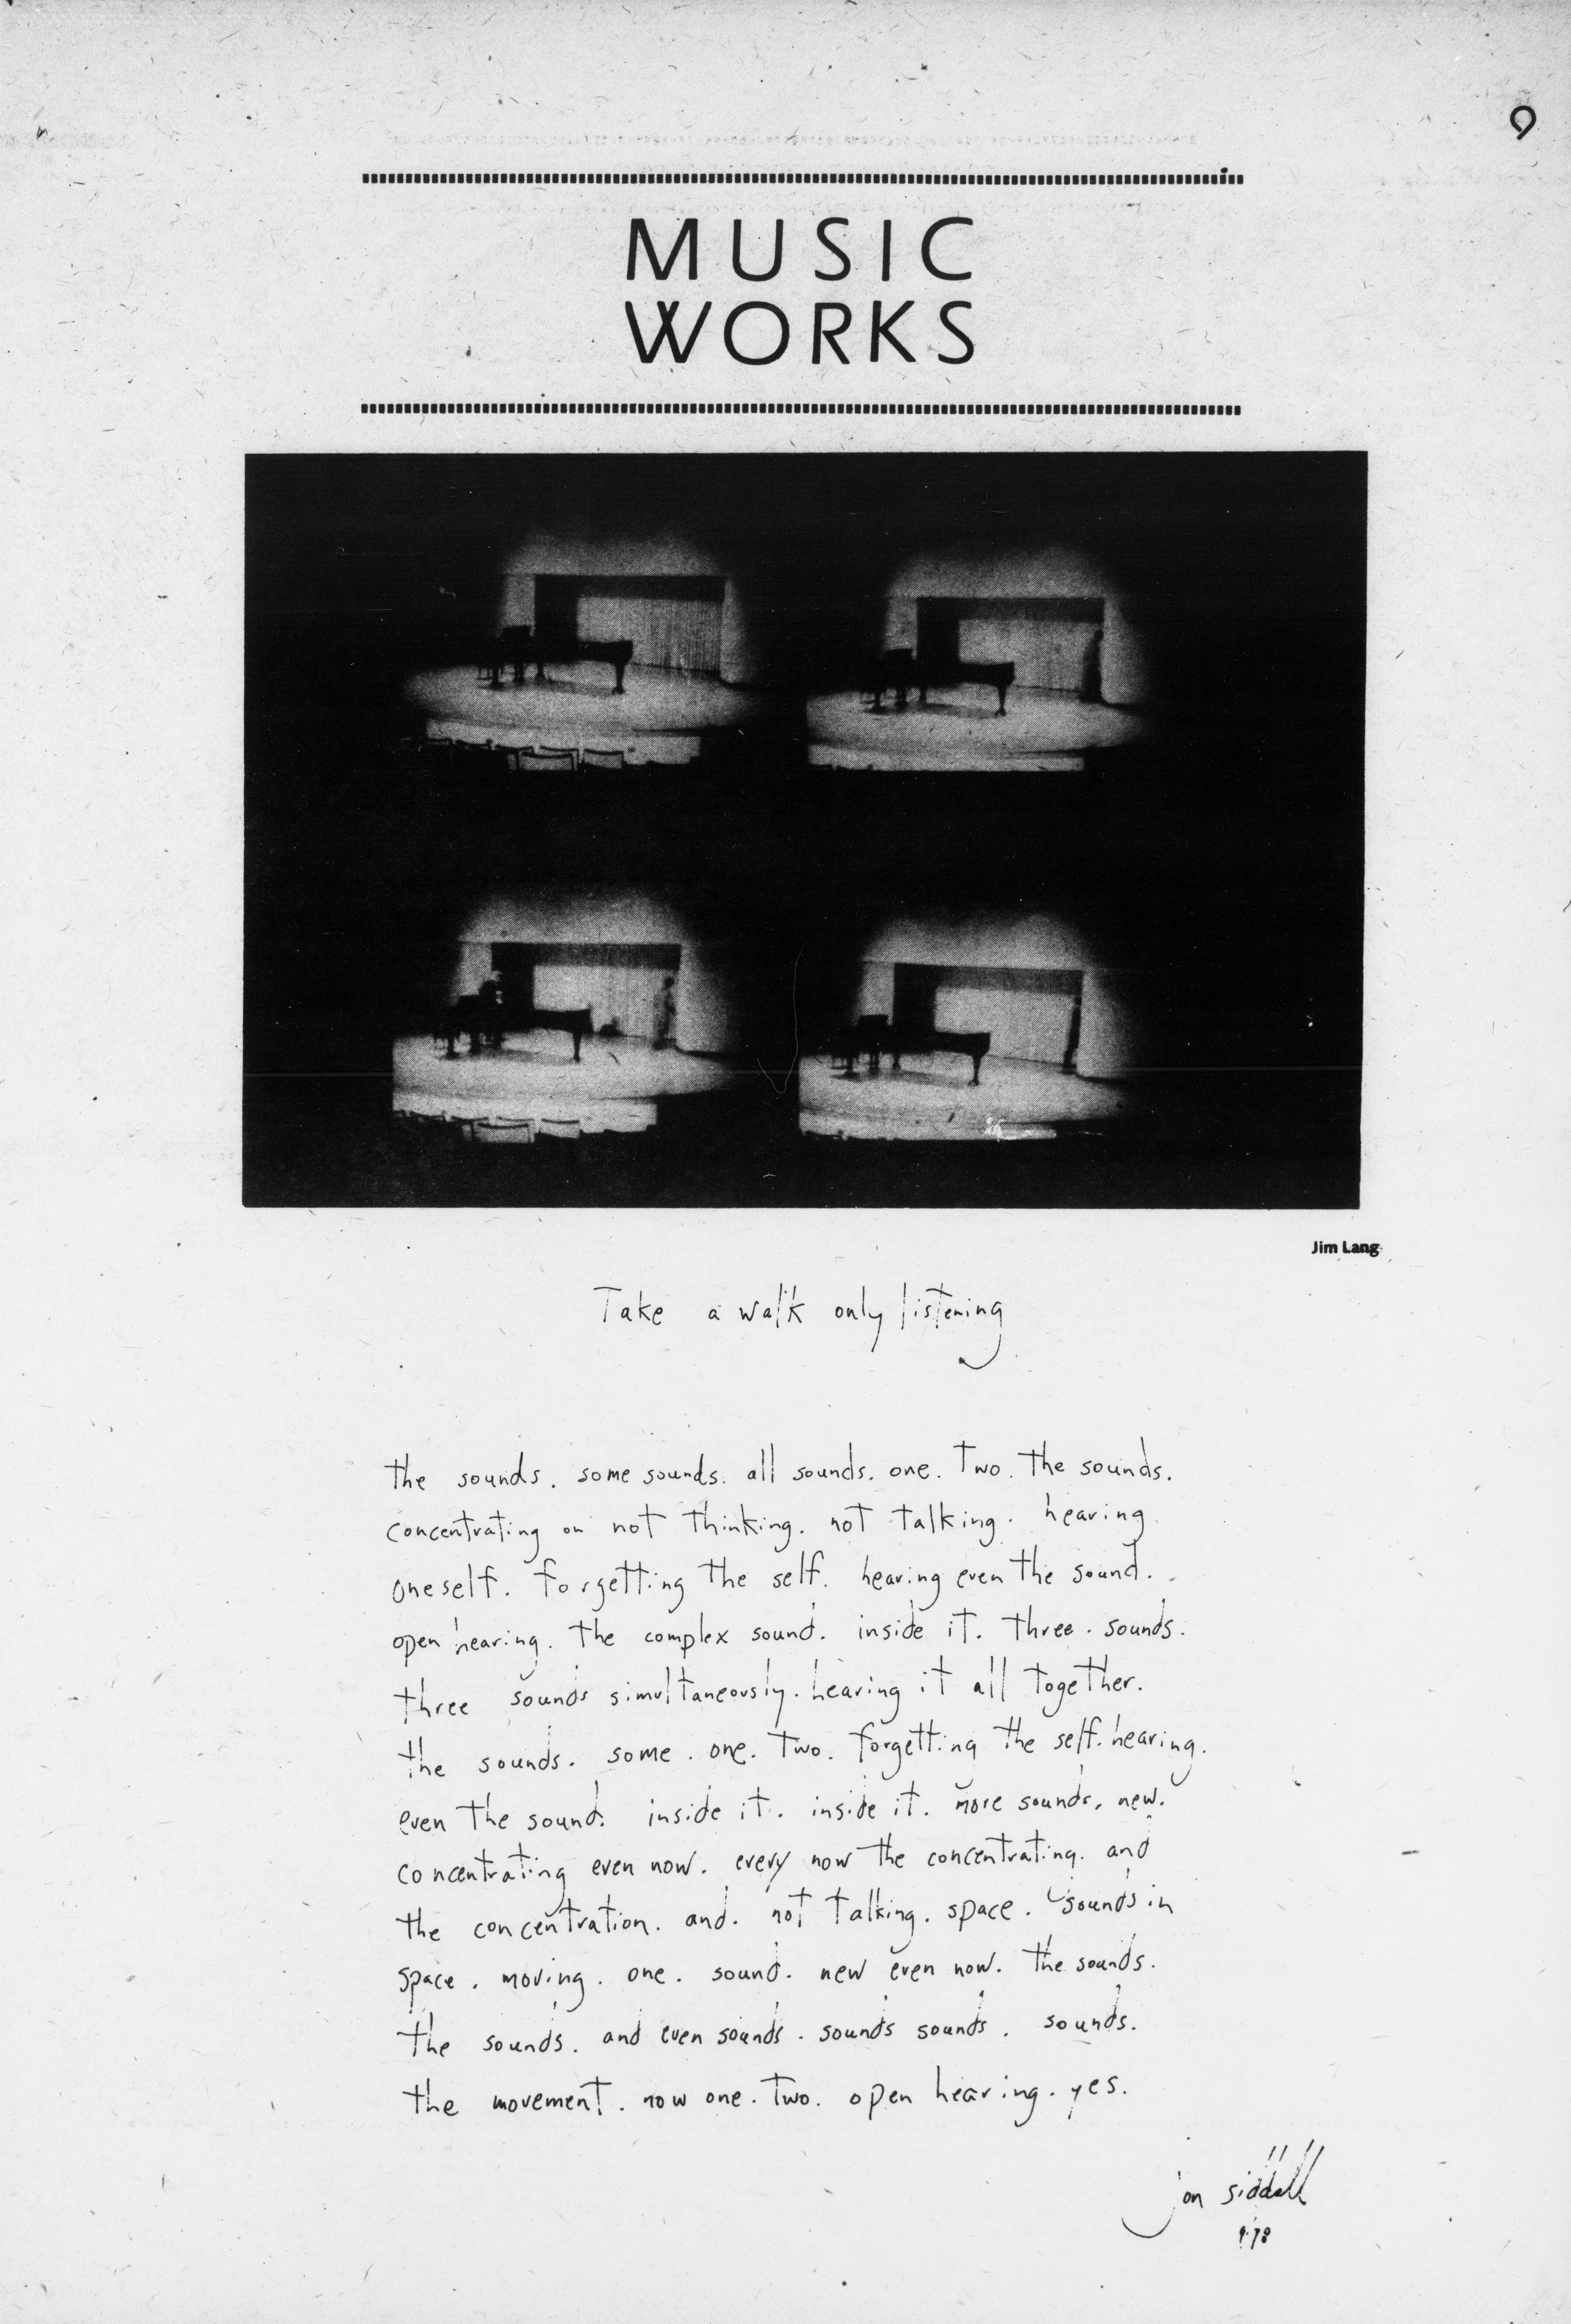 9
MUSIC
WORKS
Jim Lang
Take a walk only listening
the sounds. some sounds. all sounds. one. Two. The sounds.
concentrating on not thinking. not talking. hearing
oneself. forgetting the self. hearing even the sound.
open hearing. the complex sound. inside it. three. sounds.
three sounds simultaneously. hearing it all together.
the sounds. some. one. two. forgetting the self. hearing.
even the sound. inside it. inside it. more sounds. new.
concentrating even now. every now the concentrating. and
the concentration. and. not talking. space. sounds in
space. moving. one. sound. new even now. the sounds.
the sounds. and even sounds. sounds sounds. sounds.
the movement. now one. Two. open hearing. yes.
jon siddall
9.78